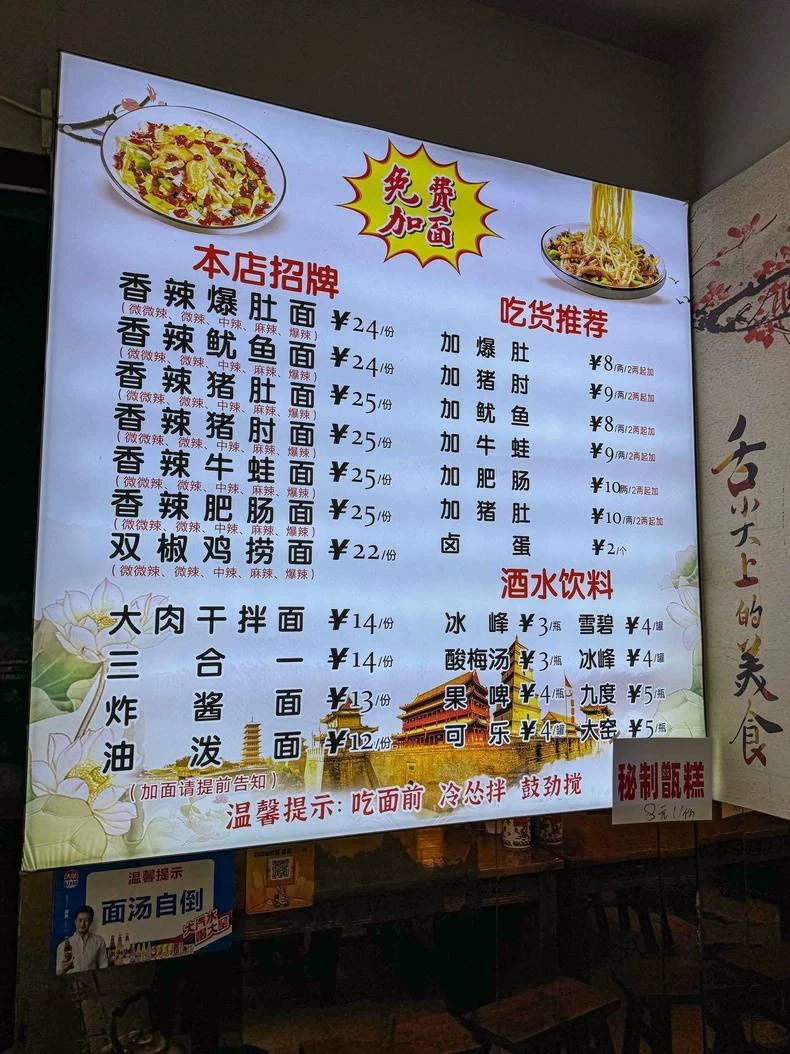 免费
加面
本店招牌
香辣爆肚面 ¥24/份
(微微辣、微辣、中辣、麻辣、爆辣)
香辣鱿鱼面 ¥24/份
(微微辣、微辣、中辣、麻辣、爆辣)
香辣猪肚面 ¥25/份
(微微辣、微辣、中辣、麻辣、爆辣)
香辣猪肘面 ¥25/份
(微微辣、微辣、中辣、麻辣、爆辣)
香辣牛蛙面 ¥25/份
(微微辣、微辣、中辣、麻辣、爆辣)
香辣肥肠面 ¥25/份
(微微辣、微辣、中辣、麻辣、爆辣)
双椒鸡捞面 ¥22/份
(微微辣、微辣、中辣、麻辣、爆辣)
大肉干拌面 ¥14/份
三合一 ¥14/份
炸酱面 ¥13/份
油泼面 ¥12/份
(加面请提前告知)
吃货推荐
加爆肚 ¥8/两/2两起加
加猪肘 ¥9/两/2两起加
加鱿鱼 ¥8/两/2两起加
加牛蛙 ¥9/两/2两起加
加肥肠 ¥10/两/2两起加
加猪肚 ¥10/两/2两起加
卤蛋 ¥2/个
酒水饮料
冰峰 ¥3/瓶 雪碧 ¥4/罐
酸梅汤 ¥3/瓶 冰峰 ¥4/罐
果啤 ¥4/瓶 九度 ¥5/瓶
可乐 ¥4/罐 大窑 ¥5/瓶
温馨提示:吃面前 冷怂拌 鼓劲搅
秘制甑糕
3元1/份
舌尖上的美食
温馨提示
面汤自倒
大汽水
喝大窑